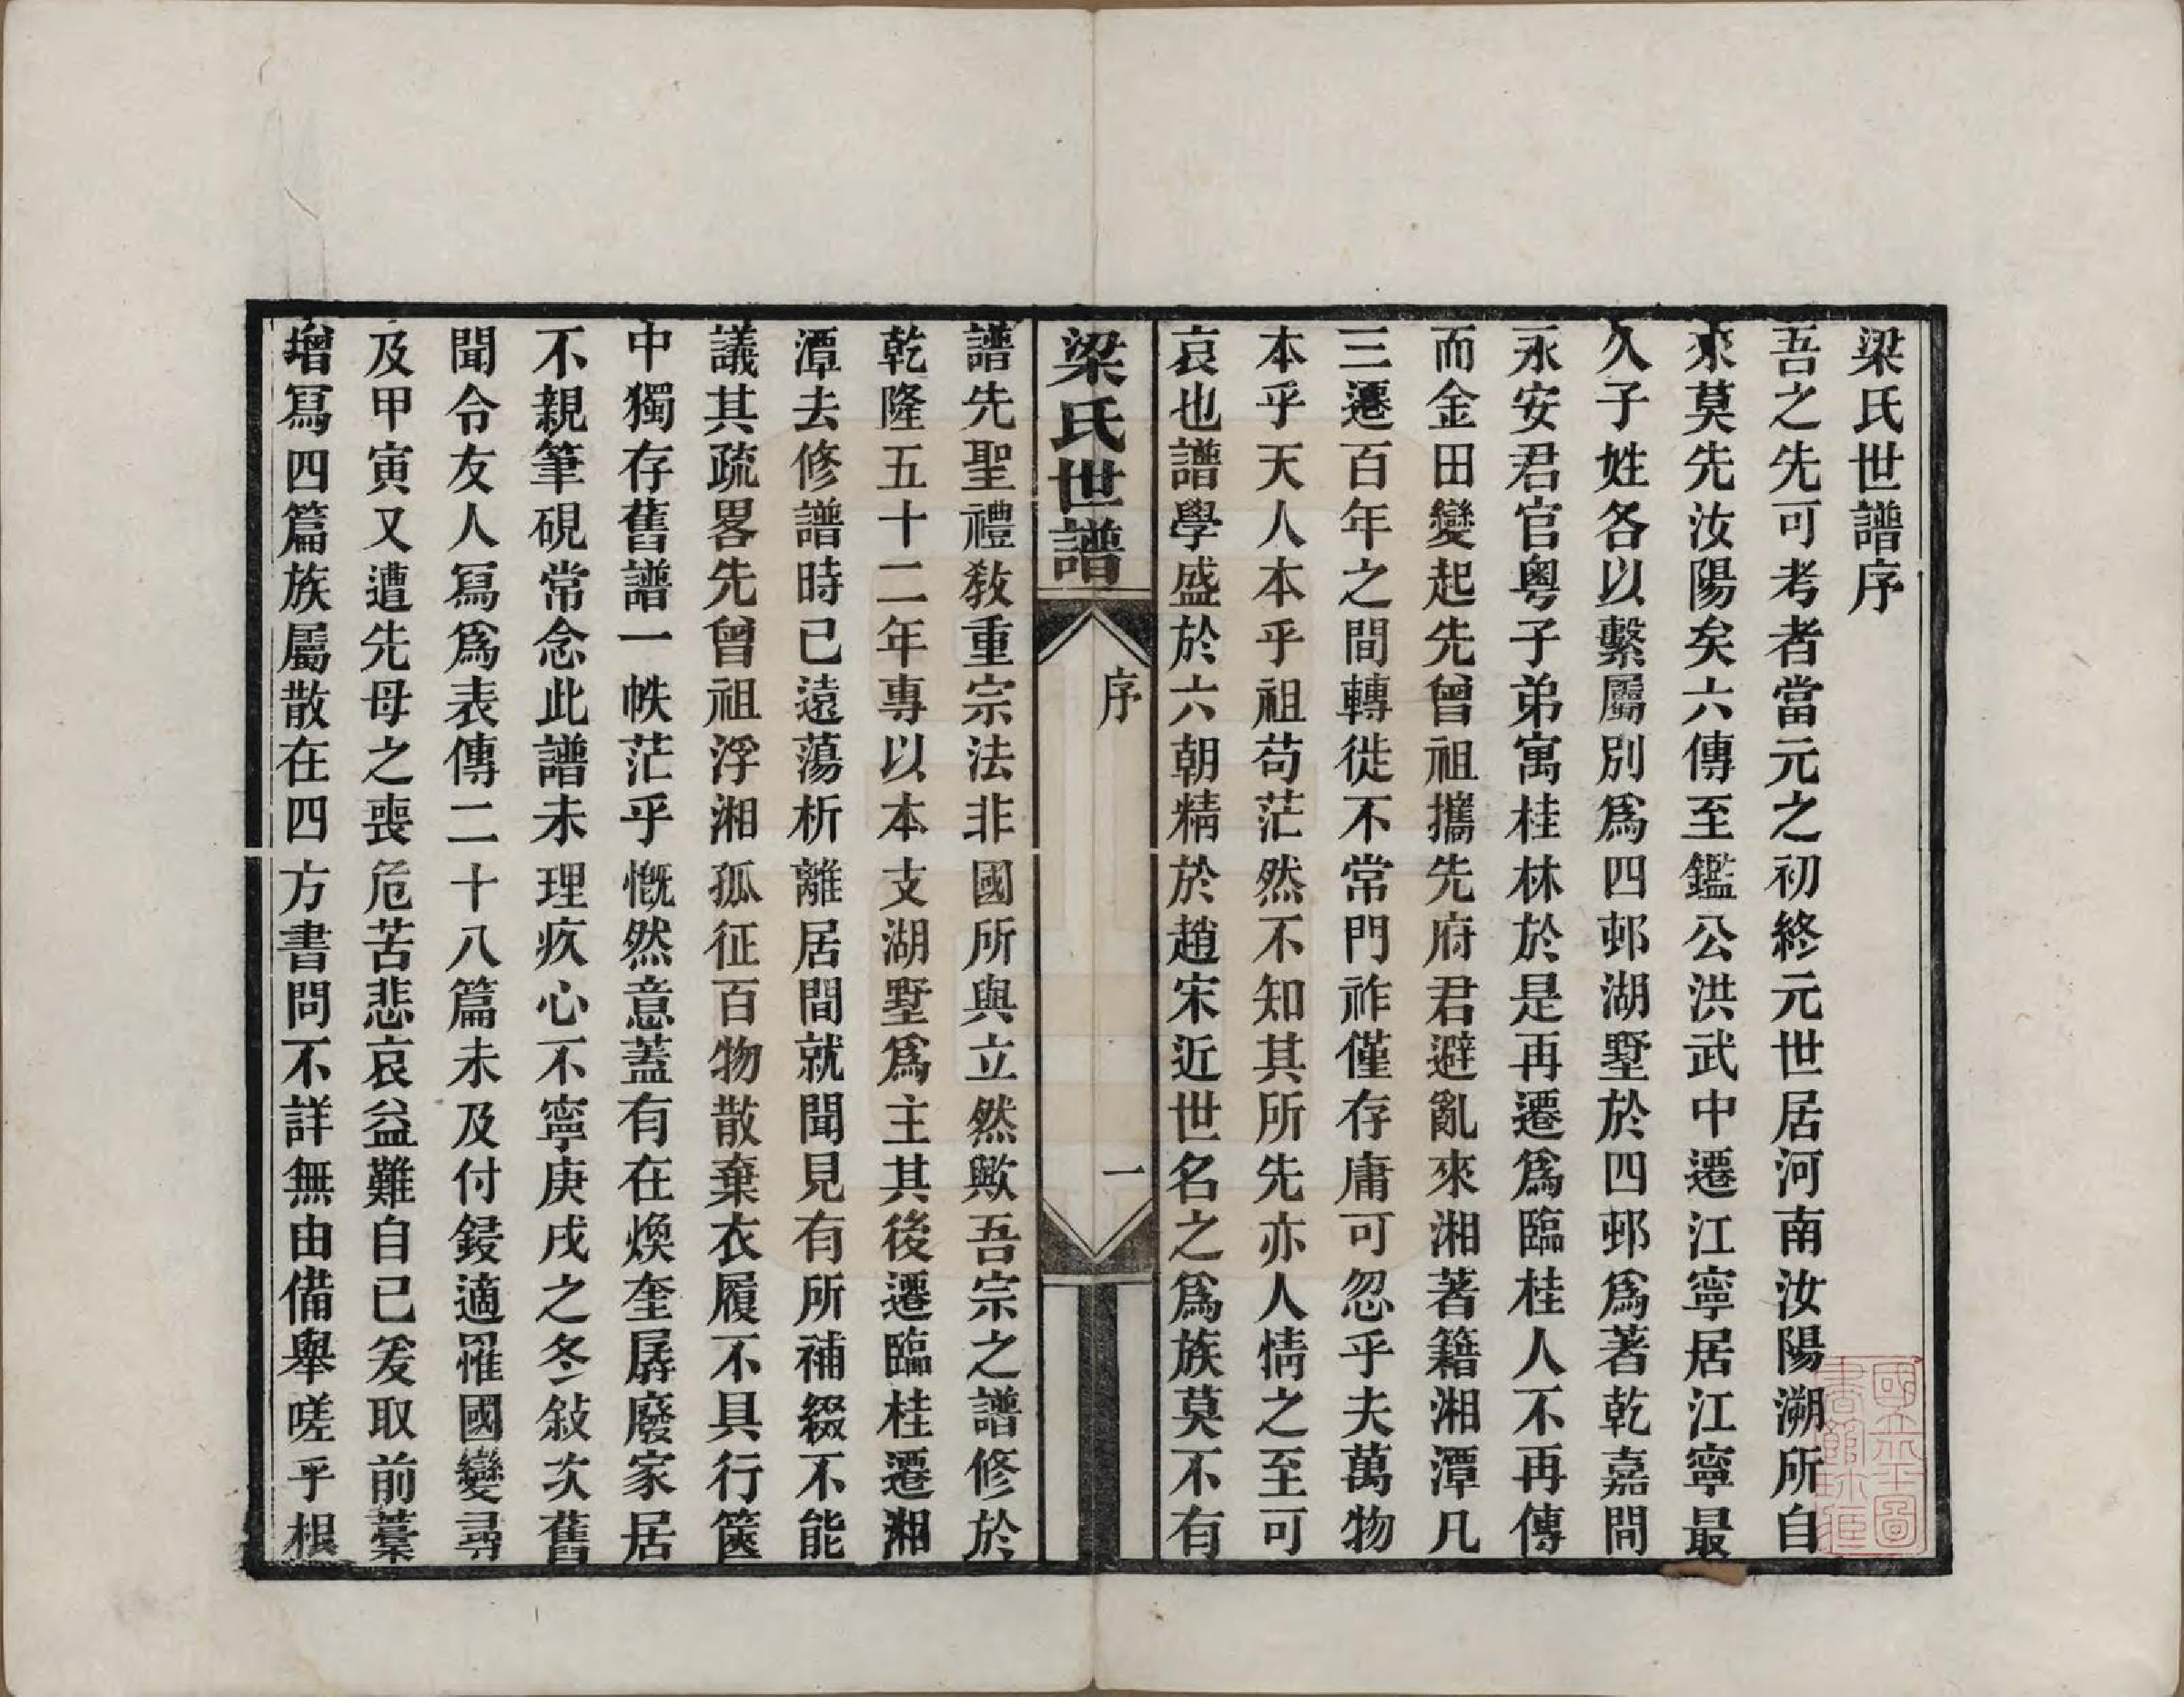 梁氏世譜序
吾之先可考者當元之初終元世居河南汝陽溯所自
來莫先汝陽矣六傳至鑑公洪武中遷江寧居江寧最
久子姓各以繫屬別爲四邨湖墅於四邨爲著乾嘉間
永安君官粵子弟寓桂林於是再遷爲臨桂人不再傳
而金田變起先曾祖攜先府君避亂來湘著籍湘潭凡
三遷百年之間轉徙不常門祚僅存庸可忽乎夫萬物
本乎天人本乎祖苟茫然不知其所先亦人情之至可
哀也譜學盛於六朝精於趙宋近世名之爲族莫不有
梁氏世譜
序
一
譜先聖禮敎重宗法非國所與立然歟吾宗之譜修於
乾隆五十二年專以本支湖墅爲主其後遷臨桂遷湘
潭去修譜時已遠蕩析離居間就聞見有所補綴不能
議其疏畧先曾祖浮湘孤征百物散棄衣履不具行篋
中獨存舊譜一帙茫乎慨然意蓋有在煥奎孱廢家居
不親筆硯常念此譜未理疚心不寧庚戌之冬敍次舊
聞令友人寫爲表傳二十八篇未及付鋟適罹國變尋
及甲寅又遭先母之喪危苦悲哀益難自已爰取前藁
增寫四篇族屬散在四方書問不詳無由備舉嗟乎根
國立圖
書館珍臧